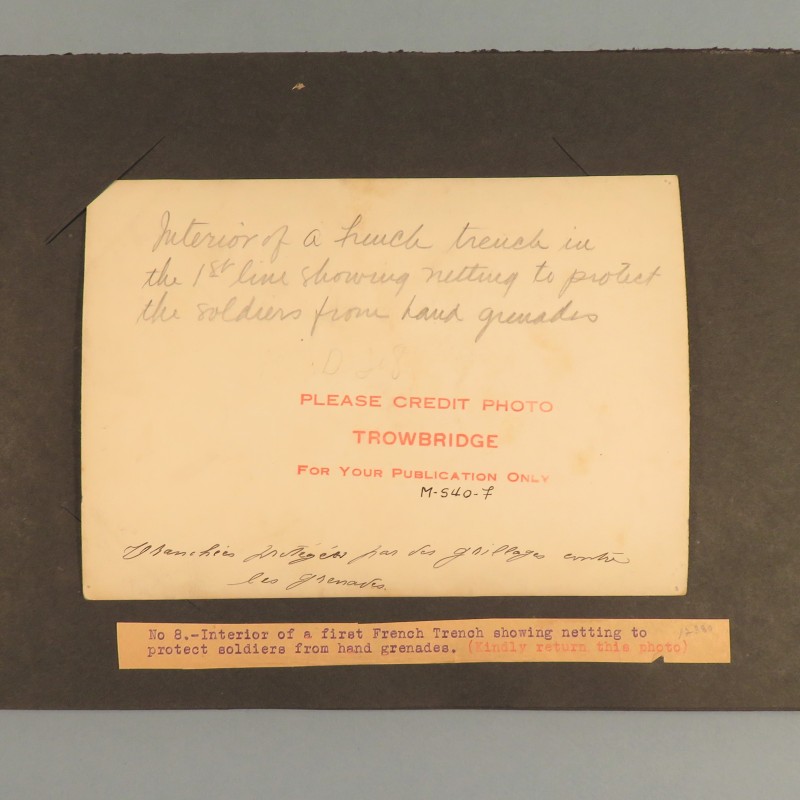 Interior of a French trench in
the 1st line showing netting to protect
the soldiers from hand grenades
PLEASE CREDIT PHOTO
TROWBRIDGE
FOR YOUR PUBLICATION ONLY
M-540-7
Tranchées protégées par des grillages contre
les grenades.
No 8.-Interior of a first French Trench showing netting to
protect soldiers from hand grenades. (Kindly return this photo)